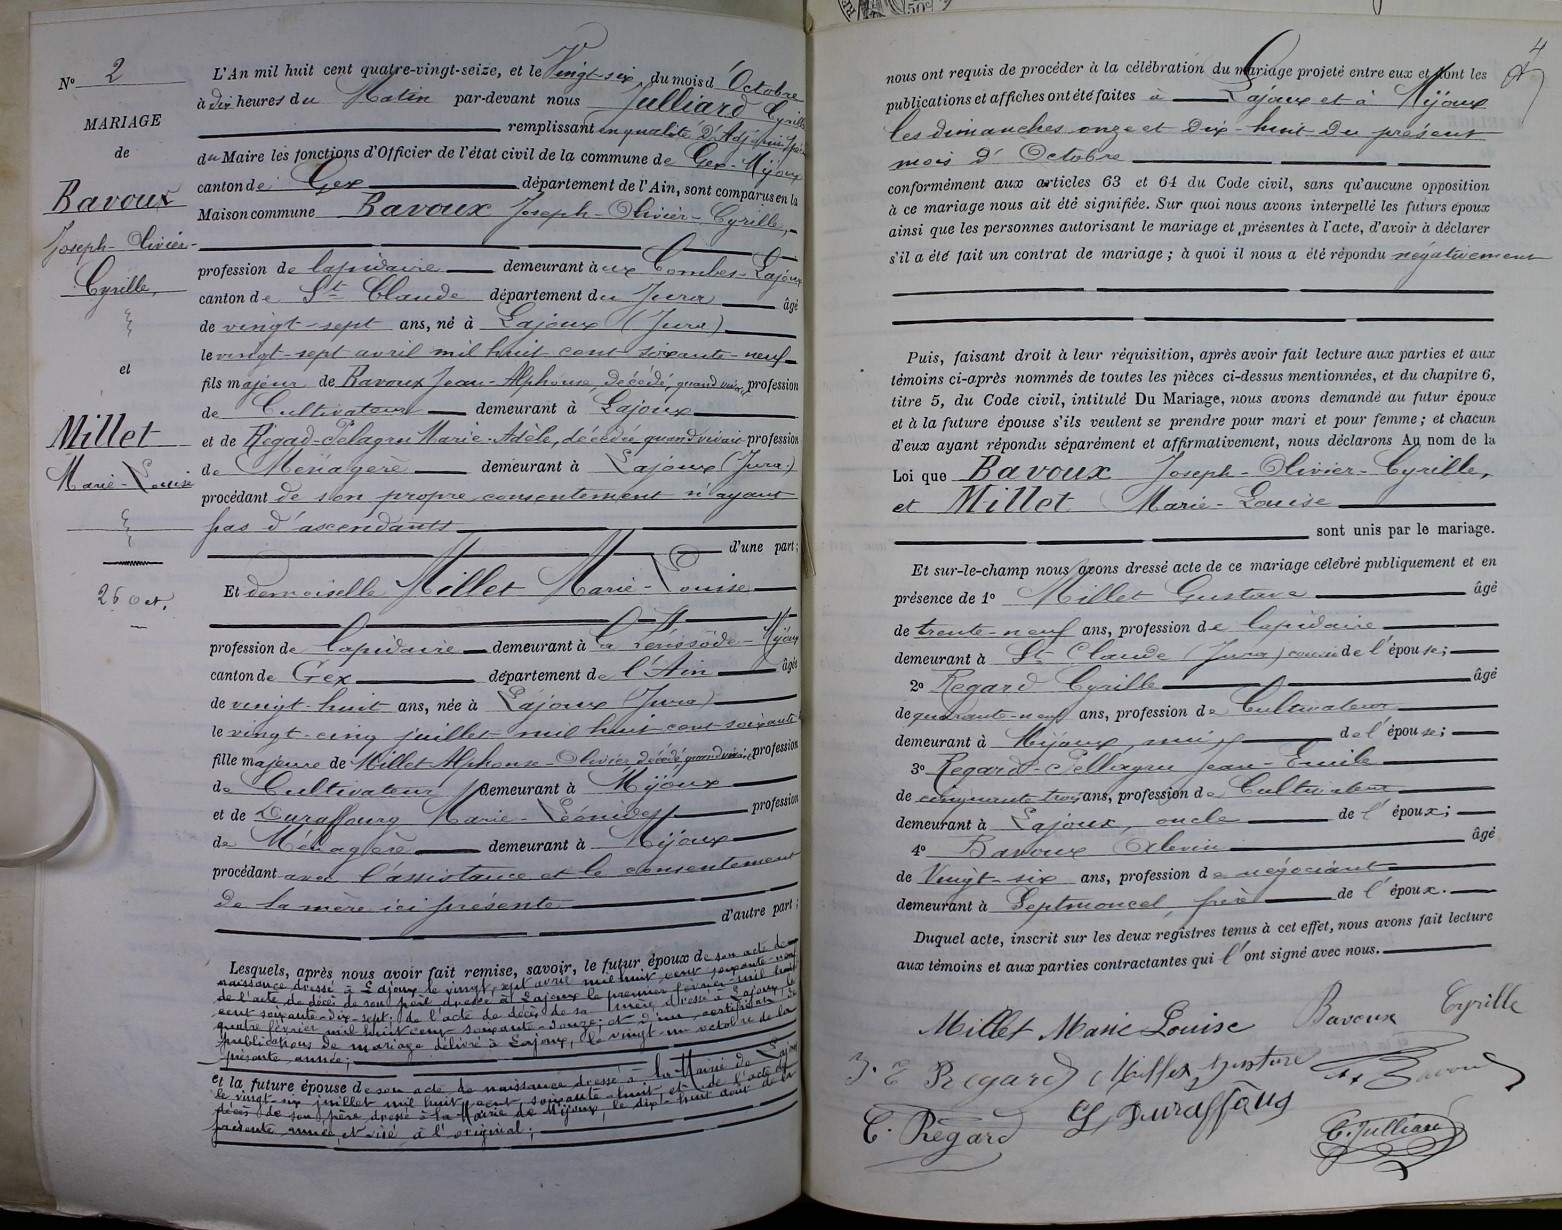 N° 2
MARIAGE
de
Bavoux
Joseph-Olivier-
Cyrille,
et
Millet
Marie-Louise
26 Oct.
L'An mil huit cent quatre-vingt-seize, et le Vingt-six, du mois d'Octobre
à dix heures du Matin par-devant nous Julliard Cyrille
remplissant en qualité d'Adjoint
du Maire les fonctions d'Officier de l'état civil de la commune de Gex-Mijoux
canton de Gex département de l'Ain, sont comparus en la
Maison commune Bavoux Joseph-Olivier-Cyrille,
profession de lapidaire demeurant aux Combes-Lajoux
canton de St Claude département du Jura âgé
de vingt-sept ans, né à Lajoux (Jura)
le vingt-sept avril mil huit cent soixante-neuf
fils majeur de Bavoux Jean-Alphonse, décédé, quand vivait profession
de Cultivateur demeurant à Lajoux
et de Régad-Pélagru Marie-Adèle, décédée quand vivait profession
de Ménagère demeurant à Lajoux (Jura)
procédant de son propre consentement n'ayant
pas d'ascendants
d'une part;
Et demoiselle Millet Marie-Louise
profession de lapidaire demeurant à Mijoux
canton de Gex département de l'Ain âgée
de vingt-huit ans, née à Lajoux (Jura)
le vingt-cinq juillet mil huit cent soixante
fille majeure de Millet Alphonse-Olivier décédé, quand vivait profession
de Cultivateur demeurant à Mijoux
et de Duraffourg Marie-Léonide profession
de Ménagère demeurant à Mijoux
procédant avec l'assistance et le consentement
de sa mère ici présente
d'autre part;
Lesquels, après nous avoir fait remise, savoir, le futur époux de son acte de
naissance dressé à Lajoux le vingt-sept avril mil huit cent soixante-neuf
de l'acte de décès de son père dressé à Lajoux le premier février mil huit
cent soixante-dix-sept; de l'acte de décès de sa mère dressé à Lajoux, le
quatre février mil huit cent soixante-douze; et d'un certificat de
publications de mariage délivré à Lajoux, le vingt-un octobre de la
présente année;
et la future épouse de son acte de naissance dressé à la Mairie de Lajoux
le vingt-six juillet mil huit cent soixante-huit, et de l'acte de
décès de son père dressé à la Mairie de Mijoux, le dix-huit août de la
présente année, et visé à l'original;
4
nous ont requis de procéder à la célébration du mariage projeté entre eux et dont les
publications et affiches ont été faites à Lajoux et à Mijoux
les dimanches onze et dix-huit du présent
mois d'Octobre
conformément aux articles 63 et 64 du Code civil, sans qu'aucune opposition
à ce mariage nous ait été signifiée. Sur quoi nous avons interpellé les futurs époux
ainsi que les personnes autorisant le mariage et présentes à l'acte, d'avoir à déclarer
s'il a été fait un contrat de mariage; à quoi il nous a été répondu négativement
Puis, faisant droit à leur réquisition, après avoir fait lecture aux parties et aux
témoins ci-après nommés de toutes les pièces ci-dessus mentionnées, et du chapitre 6,
titre 5, du Code civil, intitulé Du Mariage, nous avons demandé au futur époux
et à la future épouse s'ils veulent se prendre pour mari et pour femme; et chacun
d'eux ayant répondu séparément et affirmativement, nous déclarons Au nom de la
Loi que Bavoux Joseph-Olivier-Cyrille,
et Millet Marie-Louise
sont unis par le mariage.
Et sur-le-champ nous avons dressé acte de ce mariage célébré publiquement et en
présence de 1° Millet Gustave âgé
de trente-neuf ans, profession de lapidaire
demeurant à St Claude (Jura) cousin de l'épouse;
2° Regard Cyrille âgé
de quarante-neuf ans, profession de Cultivateur
demeurant à Mijoux, ami de l'épouse;
3° Regard-Pellagru Jean-Emile
de cinquante trois ans, profession de Cultivateur
demeurant à Lajoux, oncle de l'époux;
4° Bavoux âgé
de Vingt-six ans, profession de négociant
demeurant à Septmoncel frère de l'époux.
Duquel acte, inscrit sur les deux registres tenus à cet effet, nous avons fait lecture
aux témoins et aux parties contractantes qui l'ont signé avec nous.
Millet Marie Louise Bavoux Cyrille
J. E Regard Millet Gustave Bavoux
C. Régard L Duraffourg
C. Julliard